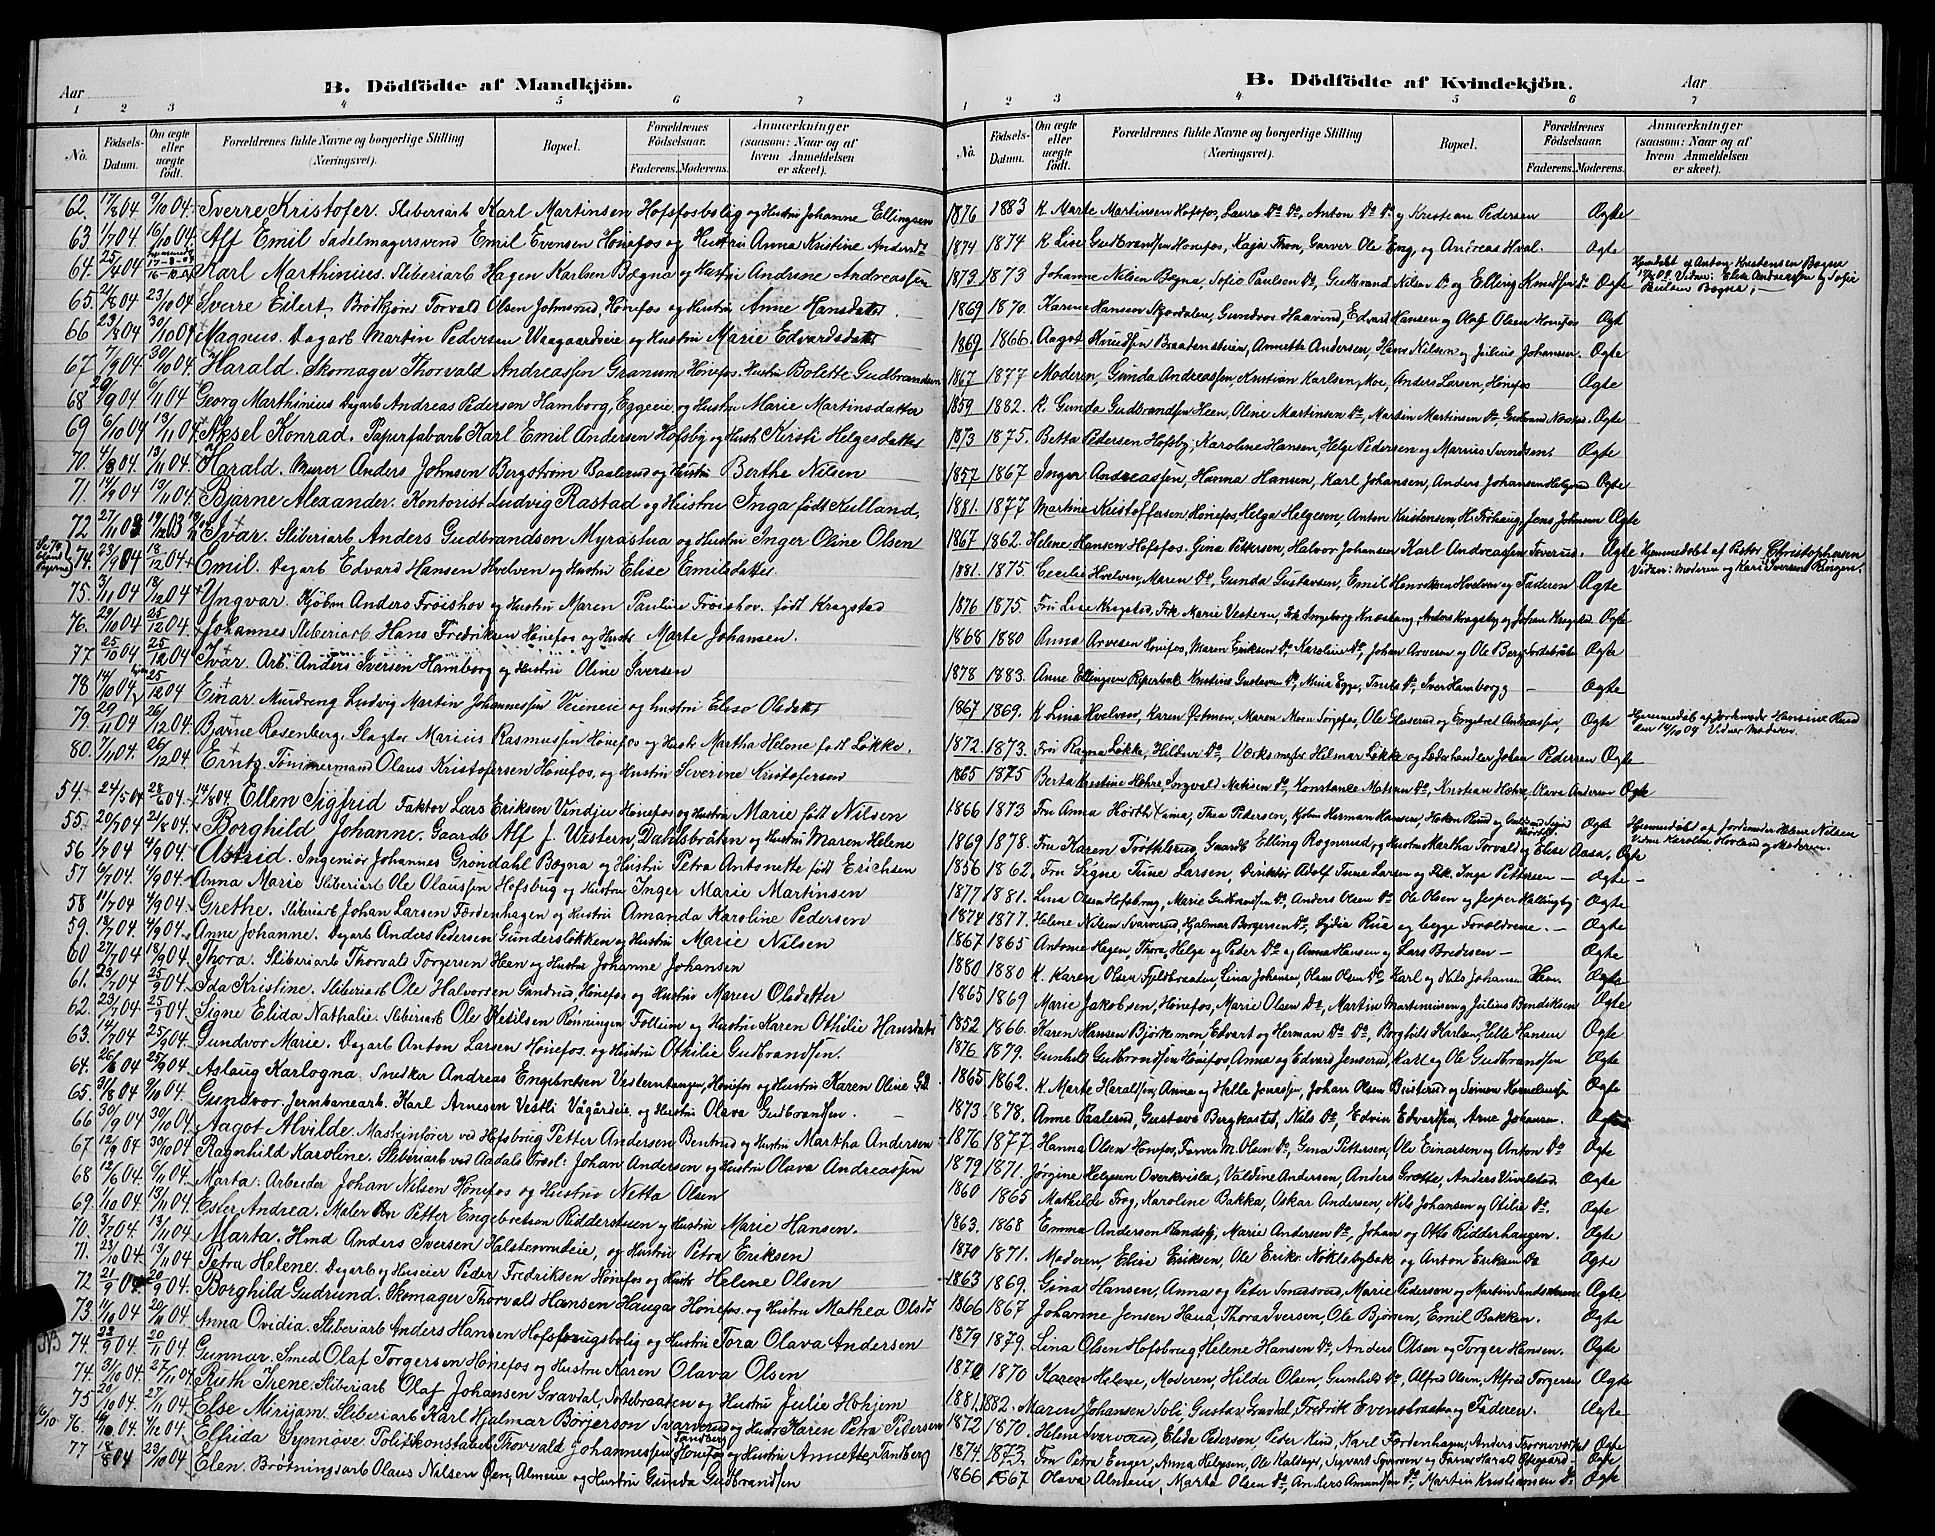 Aar
B. Dödfödte af Mandkjön.
1 2 3 4 5 6 7
No. Födsels-Datum. Om ægte eller uægte født. Forældrenes fulde Navne og borgerlige Stilling (Næringsvei). Bopæl. Forældrenes Födselsaar. Faderens. Moderens. Anmærkninger (saasom: Naar og af hvem Anmeldelsen er skeet).
62. 17/8 04 9/10 04. Sverre Kristofer. Sliberiarb Karl Martinsen Hofsfosbolig og Hustru Johanne Ellingsen
63. 1/7 04 16/10 04 Alf Emil Sadelmagersvend Emil Evensen Hönefos og Hustru Anna Kristine Andersdt
64. 25/4 04 Karl Marthinius. Sliberiarb Hagen Karlsen Bægna og Hustru Andrine Andreassen
65. 2/8 04 23/10 04 Sverre Eilert, Brödkjörer Torvald Olsen Johnsrud, Hönefos og Hustru Anne Hansdatter.
66 23/8 04 30/10 04 Magnus. Dagarb Martin Pedersen Vaagaardveie og Hustru Marie Edvardsdatt
67 7/9 04 30/10 04 Harald. Skomager Thorvald Andreassen Granum Hönefos. Hustru Bolette Gudbrandsen
68 29/9 04 6/11 04 Georg Marthinius Dagarb Andreas Pedersen Hamborg, Eggeeie og Hustru Marie Martinsdatter
69 6/10 04 13/11 04 Aksel Konrad. Papirfabarb Karl Emil Andersen Hofsby og Hustr. Kirsti Helgesdatter
70. 4/8 04. 13/11 04. Harald. Murer Anders Johnsen Bergström Baalerud og Hustru Berthe Nilsen
71. 14/9 04 13/11 04. Bjarne Alexander. Kontorist Ludvig Rastad og Hustru Inga født Kulland,
72 27/11 03 19/12 03 Ivar. Sliberiarb Anders Gudbrandsen Myrastua og Hustru Inger Oline Olsen
74. 23/9 04 18/12 04 Emil. Dagarb Edvard Hansen Hvelven og Hustru Elise Emilsdatter.
75. 3/11 04 18/12 04 Yngvar. Kjöbm Anders Fröishov og Hustru Maren Pauline Fröishov. født Kragstad
76. 29/10 04 25/12 04. Johannes Sliberiarb Hans Fredriksen Hönefos og Hustr. Marte Johansen.
77 25/10 04 25/12 04 Ivar. Arb. Anders Iversen Hamborg og Hustru Oline Iversen
78 14/10 04 25/12 04 Einar. Murdreng Ludvig Martin Johannessen Veieneie og hustru Elise Olsdatt
79. 29/11 04 26/12 04. Bjarne Rosenberg. Slagter Marius Rasmussen Hönefos og Hustr Martha Helene født Løkke.
80. 7/11 04. 26/12 04. Ernts. Tömmermand Olaus Kristofersen Hönefos, og Hustru Severine Kristofersen
54. 24/5 04 28/6 04. 14/8 04. Ellen Sigfrid Faktor Lars Eriksen Vindju Hönefos og Hustru Marie født Nilsen
55. 20/7 04 21/8 04. Borghild Johanne. Gaardb Alf J. Vestern, Dahlsbråten og Hustru Maren Helene
56 1/7 04 4/9 04. Astrid. Ingeniør Johannes Gröndahl Bægna og Hustru Petra Antonette født Erichsen
57 6/7 04 4/9 04. Anna Marie Sliberiarb Ole Olaussen Hofsbrug og Hustru Inger Marie Martinsen
58 21/7 04 4/9 04. Grethe. Sliberiarb Johan Larsen Færdenhagen og Hustru Amanda Karoline Pedersen
59. 18/7 04. 4/9 04. Anne Johanne. Dagarb Anders Pedersen Gundersløkken og Hustru Marie Nilsen
60 27/7 04 18/9 04. Thora. Sliberiarb Thorvald Torgersen Heen og Hustru Johanne Johansen
61. 23/7 04 25/9 04. Ida Kristine. Sliberiarb Ole Halvorsen Gundrud, Hönefos og Hustru Maren Olsdatter
62. 23/7 04 25/9 04. Signe Elida Nathalie. Sliberiarb Ole Ketilsen Rønningen Follum og Hustru Karen Othilie Hansdatt
63. 14/7 04 25/9 04. Gundvor Marie. Dagarb Anton Larsen Hönefos og Hustru Othilie Gudbrandsen.
64. 26/6 04 25/9 04 Aslaug Karlogna. Snekker Andreas Engebretsen Vesterntangen, Hönefos og Hustru Karen Oline
65. 31/8 04 9/10 04. Gundvor. Jernbanearb. Karl Arnesen Vestli Vågårdeie, og Hustru Olava Gudbrandsen.
66 30/9 04 30/10 04. Aagot Alvilde. Maskinfører ved Hofsbrug Petter Andersen Bentrud og Hustru Martha Andersen
67 12/9 04 30/10 04 Ragnhild Karoline. Sliberiarb ved Aadals Træsl. Johan Andersen og Hustru Olava Andreassen
68 12/6 04. 6/11 04. Marta. Arbeider Johan Nilsen Hönefos og Hustru Netta Olsen
69. 1/10 04 13/11 04. Ester Andrea. Maler Petter Engebretsen Ridderstuen og Hustru Marie Hansen.
70. 3/7 04. 13/11 04. Marta. Hmd Anders Iversen Halstenrudeie, og Hustru Petra Eriksen
71. 23/10 04. 13/11 04. Petra Helene. Dagarb og Huseier Peder Fredriksen Hönefos og Hustr. Helene Olsen
72 21/9 04 20/9 04. Borghild Gudrund. Skomager Thorvald Hansen Hauga, Hönefos. og Hustru Mathea Olsdt
73 11/10 04 20/11 04. Anna Ovidia. Sliberiarb Anders Hansen Hofsbrugsbolig og Hustru Tora Olava Andersen
NB 74. 22/9 04 20/11 04. Gunnar. Smed Olaf Torgersen Hönefos og Hustru Karen Olava Olsen
74. 3/10 04. 27/11 04. Ruth Irene. Sliberiarb Olaf Johansen Gravdal, Sortebraaten og Hustru Julie Hohjem
75 20/10 04. 27/11 04. Else Mirijam. Sliberiarb Karl Hjalmar Börjeson Svarverud og Hustr Karen Petra Pedersen
76. 04. 4/12 04. Elfrida Synnöve. Politikonstabel Thorvald Johannessen Tandberg Hönefos og Hustru Annette Tandberg
77 18/8 04 23/10 04 Elen. Brøtningsarb Olaus Nilsen Øen, Almeie og Hustru Gunda Gudbrandsen
B. Dödfödte af Kvindekjön.
Aar
1 2 3 4 5 6 7
No. Födsels-Datum. Om ægte eller uægte født. Forældrenes fulde Navne og borgerlige Stilling (Næringsvei). Bopæl. Forældrenes Födselsaar. Faderens. Moderens. Anmærkninger (saasom: Naar og af hvem Anmeldelsen er skeet).
1876 1883 K. Marte Martinsen Hofsfos, Laura Do Do, Anton Do Do og Kristian Pedersen Ægte
1874 1874 K Lise Gudbrandsen Hönefos, Kaja Thon, Garver Ole Eng, og Andreas Hval. Ægte
1873 1873 Johanne Nilsen Bægna, Sofie Paulsen Do, Gudbrand Nilsen Do og Elling Knudsen Do Ægte Hjemdøbt af Anton Kristensen Bægna Vidner: Elise Andreassen og Sofie Paulsen Bægna.
1869 1870. Karen Hansen Skjordalen, Gundros Haavind, Edvard Hansen og Olaf Olsen Hönefos Ægt
1869 1866. Aagot Knudsen Braatenstuen, Annette Andersen, Hans Nilsen og Julius Johansen. Ægte
1867 1877 Moderen, Gunda Andreassen, Kristian Karlsen, Moe, Anders Larsen, Hönefos Ægte
1859 1882. K. Gunda Gudbrandsen Heen, Oline Martinsen Do, Martin Martinsen Do Ægte
1873 1875. Betta Pedersen Hofsby, Karoline Hansen, Helge Pedersen og Marius Svendsen. Ægte
1857 1867 Inger Andreassen, Hanna Hansen, Karl Johansen, Anders Johansen Helgerud Ægte
1881. 1877 Martine Kristoffersen Hönefos, Helga Helgesen, Anton Kristensen, H. Fröhaug, Jens Johnsen Ægte
1867 1862. Helene Hansen Hofsfos. Gina Pettersen, Halvor Johansen Karl Andreassen Toverud. Ægte Hjemmedøbt af Pastor Christophersen Vidner: Moderen og Kari Sversens Ringen.
1881. 1875. Cecilie Hvelven, Maren Do, Gunda Gustavsen, Emil Henriksen Hvelven og Faderen Ægte
1876 1875. Fru Lise Kragstad, Frk Marie Vestern, Frk Ingeborg Knæstang, Anders Kragsby og Johan Kragstad Ægte
1868 1880 Anna Arvesen Hönefos, Maren Eriksen Do, Karoline Do, Johan Arvesen og Ole Berg Sortebråten Ægte
1878 1883. Anne Ellingsen Piperbak Kristine Gustavsen Do, Mina Egge, Truls Do, Iver Hamborg Ægte
1867 1869. K Lina Hvelven, Karen Østmoen, Maren Moen Sorgefos, Ole Slaserud og Engebret Andreassen, Ægte Hjemmedøbt af Jordemoder Hansine Ruud den 04 Vidner Moderen.
1872. 1873. Fru Ragna Løkke, Hildur Do, Værksmester Hilmar Løkke og Læderhandler Johan Pedersen Ægte
1865 1875 Berta Kristine Hohre, Ingvald Madsen Do, Konstanse Matsen Do, Kristian Hohre, Olava Andersen Ægte
1866 1873 Fru Anna Hörth, Thea Pedersen, Kjøbm Herman Hansen, Haken Ruud Ægte Hjemmedøbt af Jordemoder Helene Nilsen Vidner Karoline Hovland og Moderen.
1869 1878. Fru Karen Tröttelsrud, Gaardb Elling Rognerud og Hustru Martha Torvald og Elise Aasa, Ægte
1856 1862. Fru Signe Tune Larsen, Direktör Adolf Tune Larsen og Frk. Inga Pettersen – Ægte –
1877 1881. Lina Olsen Hofsbrug, Marie Gudbrandsen Do, Anders Olsen Do Ole Olsen og Jesper Hallingby Ægte
1874 1877. Helene Nilsen Svarverud, Hjalmar Borgersen Do, Lydia Rua og begge Forældrene. – Ægte
1867 1865 Antonie Hagen, Thora, Helga og Peter Do og Anna Hansen og Lars Bredesen – Ægte
1880 1880 K. Karen Olsen Fjeldbraaten, Lina Johansen, Olaus Olsen Do, Karl og Nils Johansen Heen. Ægte
1865 1869 Marie Jakobsen, Hönefos, Marie Olsen Do, Martin Martinussen og Julius Bendiksen Ægte
1852 1866. Karen Hansen Björkemoen, Edvart og Herman Do Do, Borghild Karlsen, Helle Hansen Ægte
1876 1879. Gunhild Gudbrandsen Hönefos, Anna og Edvard Jenserud, Karl og Ole Gudbrandsen Ægte
1865 1862. K. Marte Haraldsen, Anna og Helle Jonassen, Johan Olsen Busterud og Simen Korneliussen Ægte
1873. 1878. Anne Paalerud, Gustava Bergkastet, Nils Do, Edvin Edvardsen, Arne Johansen. Ægte
1876 1877. Hanna Olsen Hönefos, Farver M. Olsen Do, Gina Pettersen, Ole Einarsen og Anton Do Ægte
1879 1871. Jörgine Helgesen Overkvisla, Valdine Andersen, Anders Grøtte, Anders Vivelstad Ægte
1860 1865 Mathilde Trøg, Karoline Bakka, Oskar Andersen, Nils Johansen og Otilie Do. Ægte
1863. 1868 Emma Andersen Randsfj, Marie Andersen Do, Johan og Otto Ridderhaugen. Ægte
1870 1871. Moderen, Elise Eriksen, Ole Eriks. Nöklebybak og Anton Eriksen Do Ægte
1863 1869. Gina Hansen, Anna og Peter Smedsrud, Marie Pedersen og Martin Sandstrøm Ægte
1866 1867 Johanne Jensen Haug, Thora Iversen, Ole Björnen, Emil Bakken. Ægte
1879 1879. Lina Olsen Hofsbrug Helene Hansen Do, Anders Olsen og Torger Hansen. Ægte
1870 1870 Karen Helene, Moderen, Hilda Olsen, Gunhild Do, Alfred Olsen, Alfred Torgersen Ægte
1881. 1882. Maren Johansen Soli, Gustav Gravdal, Fredrik Evensbraaten og Faderen. Ægte
1872 1870. Helene Svarverud, Elida Pedersen, Peder Rud, Karl Færdenhagen, Anders Ægte
1874. 1873. Fru Petra Enger, Anna Helgesen, Ole Kaldager, Sigvart Syversen og Farver Harald Østgaard – Ægte
1866 1867 Olava Almeie, Marta Olsen Do, Anders Amundsen Do, Martin Kristiansen Do Ægte